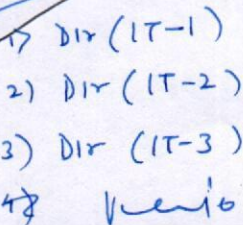 1) Dir (IT-1)
2) Dir (IT-2)
3) Dir (IT-3)